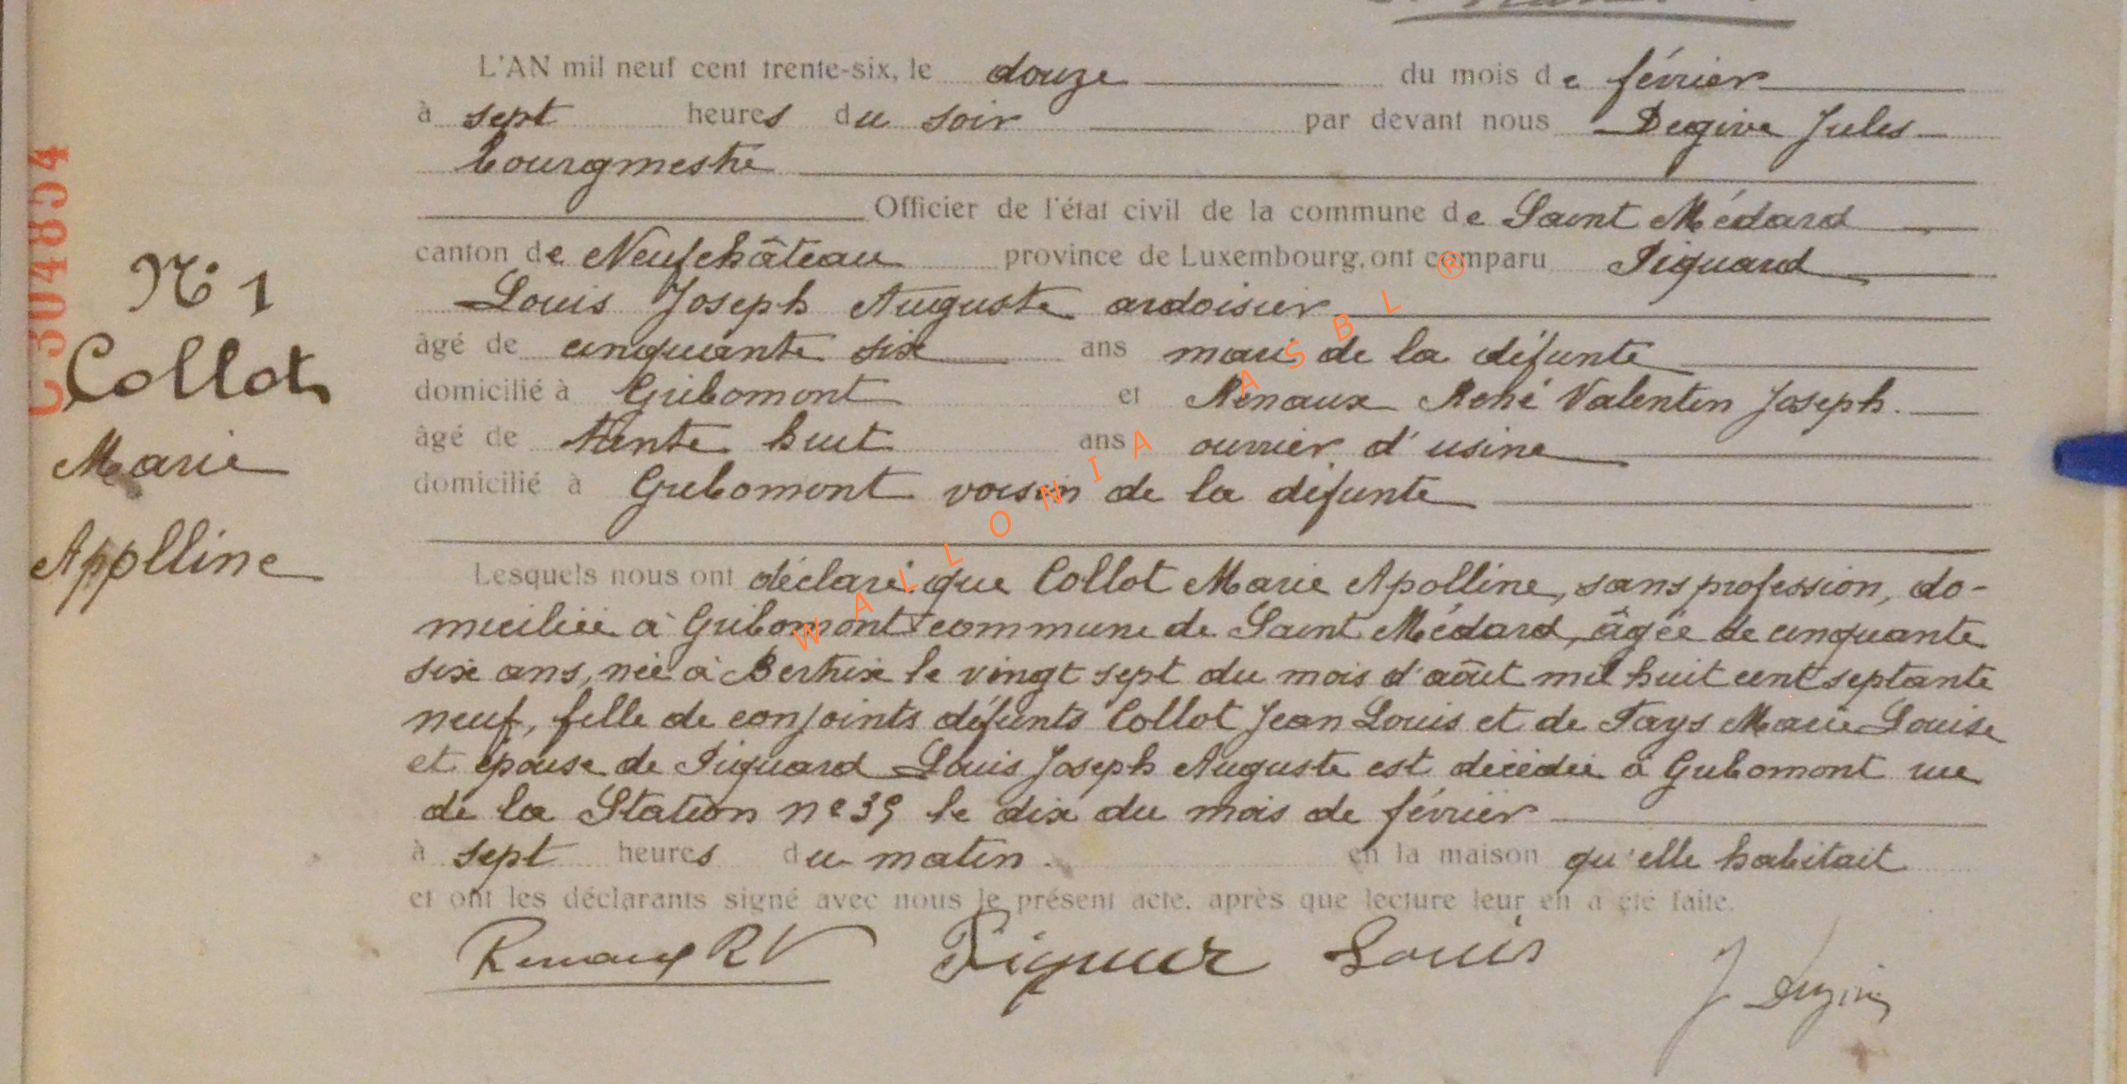 L'AN mil neuf cent trente-six, le douze du mois de février
à sept heures du soir par devant nous Degive Jules
bourgmestre
Officier de l'état civil de la commune de Saint Médard
canton de Neufchâteau province de Luxembourg, ont comparu Piquard
Louis Joseph Auguste ardoisier
âgé de cinquante six ans mari de la défunte
domicilié à Gribomont et Renaux René Valentin Joseph.
âgé de trente huit ans ouvrier d'usine
domicilié à Gribomont voisin de la défunte
Lesquels nous ont déclaré que Collot Marie Apolline, sans profession, do-
miciliée à Gribomont commune de Saint Médard, âgée de cinquante
six ans, née à Bertrix le vingt sept du mois d'août mil huit cent septante
neuf, fille de conjoints défunts Collot Jean Louis et de Tays Marie Louise
et épouse de Piquard Louis Joseph Auguste est décédée à Gribomont rue
de la Station n° 39 le dix du mois de février
à sept heures du matin. en la maison qu'elle habitait
et ont les déclarants signé avec nous le présent acte, après que lecture leur en a été faite.
Renaux RV Piquar Louis
J Degive
N° 1
Collot
Marie
Applline
C304854
WALLONIA ASBL ®